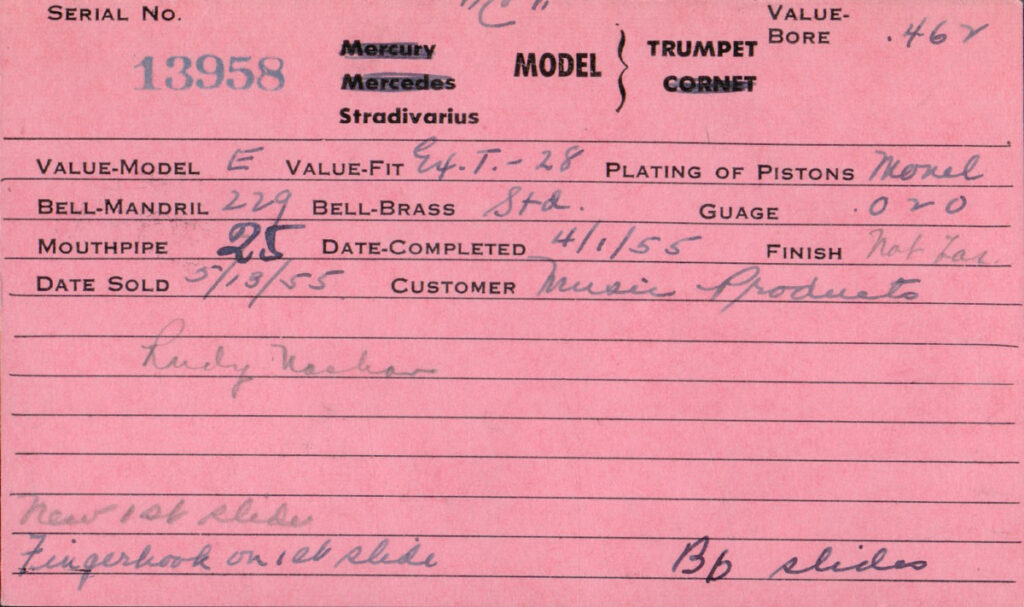 SERIAL NO. "C" VALUE-BORE .462
13958
Mercury
Mercedes MODEL } TRUMPET
Stradivarius CORNET
VALUE-MODEL E VALUE-FIT Ex. T.-28 PLATING OF PISTONS Monel
BELL-MANDRIL 229 BELL-BRASS Std. GUAGE .020
MOUTHPIPE 25 DATE-COMPLETED 4/1/55 FINISH Not Lac.
DATE SOLD 5/13/55 CUSTOMER Music Products
Rudy
New 1st slide
Fingerhook on 1st slide Bb slides